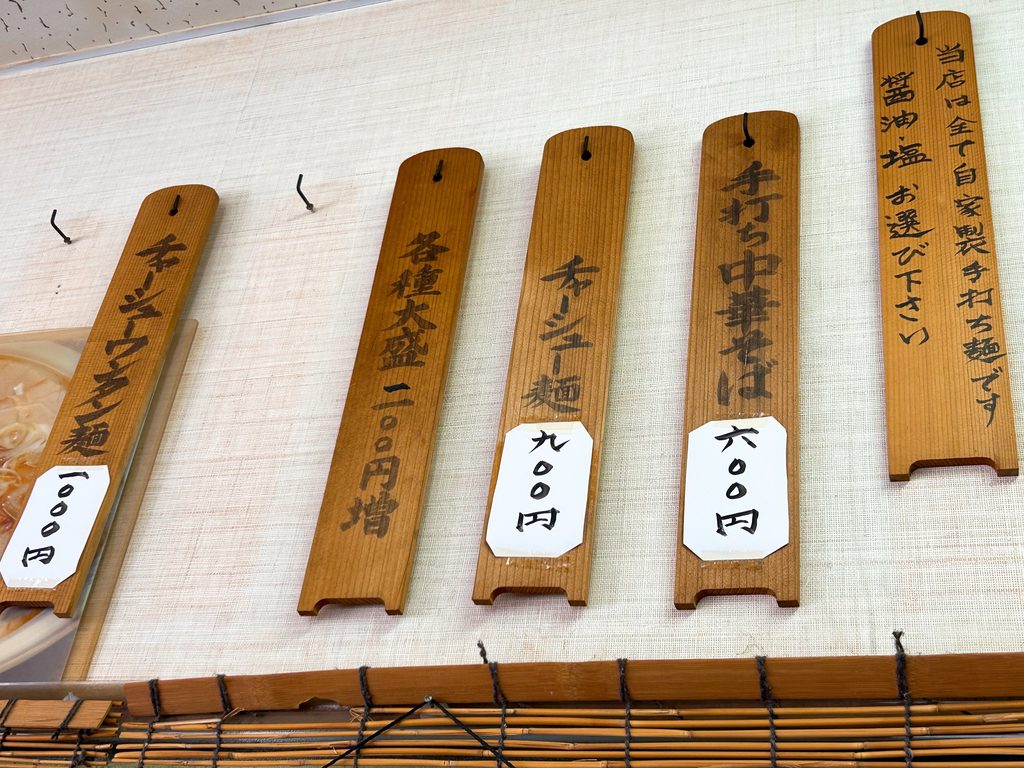 当店は全て自家製手打ち麺です
醤油・塩お選び下さい
手打ち中華そば
六〇〇円
チャーシュー麺
九〇〇円
各種大盛二〇〇円増
チャーシューワンタン麺
一〇〇〇円